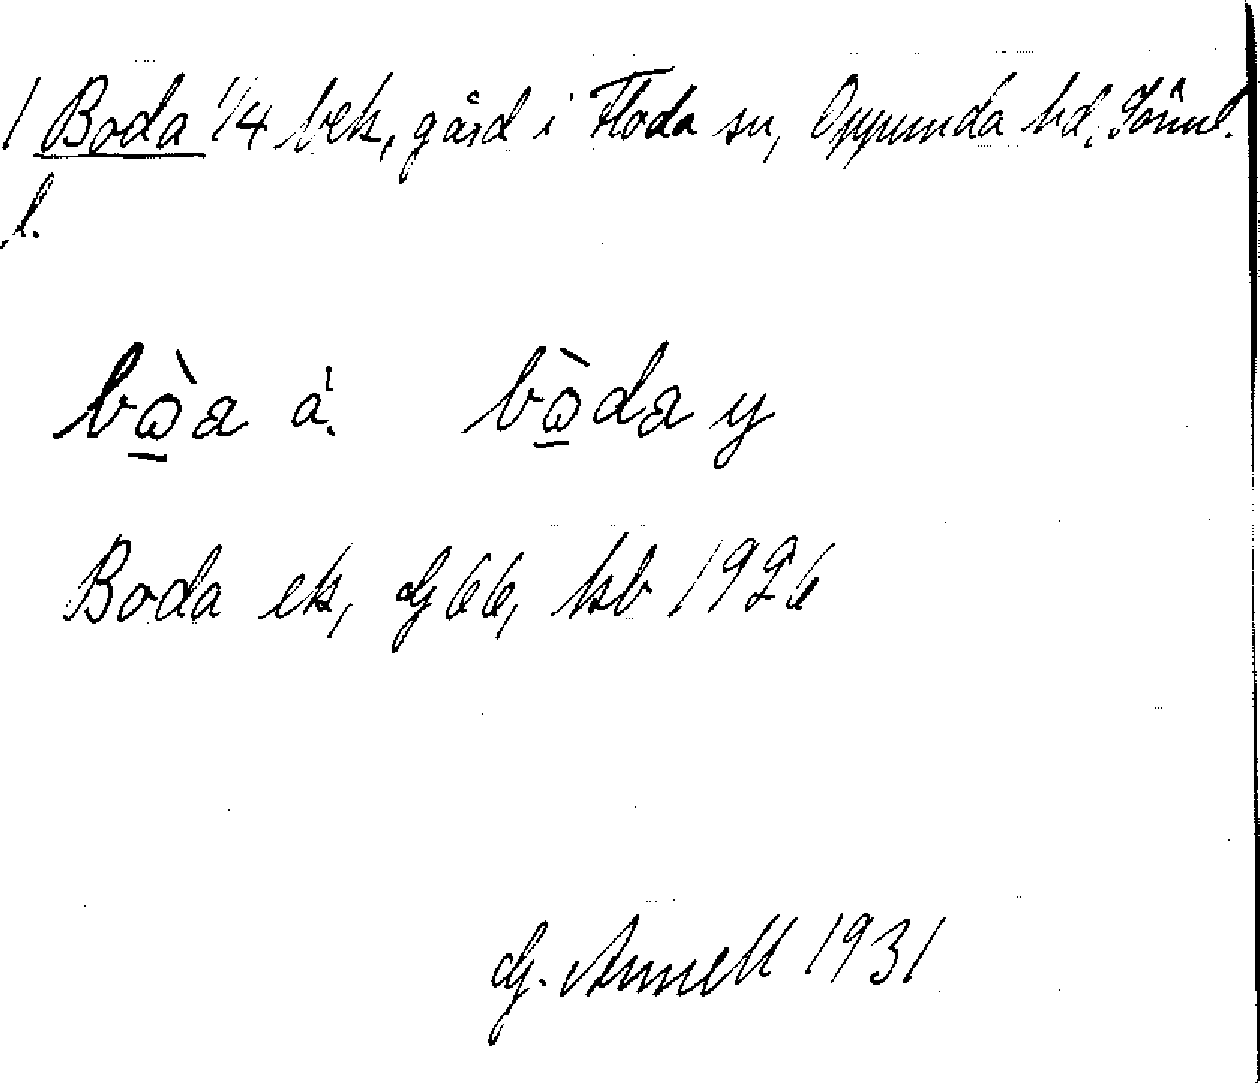 1 Boda 1/4 bek, gård i Floda sn, Oppunda hd, Söml.
l.
bὼ̲a ä. bὼ̲da y
Boda ek, G66, kb 1926
G. Annell 1931